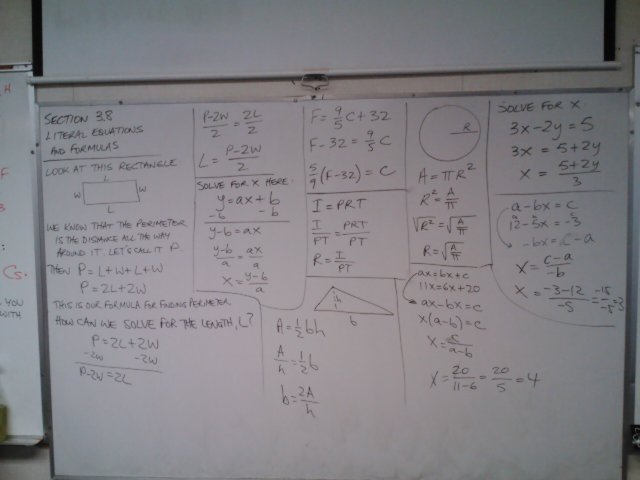 SECTION 3.8
LITERAL EQUATIONS
AND FORMULAS
LOOK AT THIS RECTANGLE
L
W W
L
WE KNOW THAT THE PERIMETER
IS THE DISTANCE ALL THE WAY
AROUND IT. LET'S CALL IT P.
THEN P = L+W+L+W
P = 2L+2W
THIS IS OUR FORMULA FOR FINDING PERIMETER
HOW CAN WE SOLVE FOR THE LENGTH, L?
P = 2L+2W
-2W -2W
P-2W = 2L
P-2W/2 = 2L/2
L = P-2W/2
SOLVE FOR X HERE:
y = ax + b
-b -b
y-b = ax
y-b/a = ax/a
x = y-b/a
F = 9/5 C + 32
F - 32 = 9/5 C
5/9 (F-32) = C
I = PRT
I/PT = PRT/PT
R = I/PT
h
b
A = 1/2 bh
A/h = 1/2 b
b = 2A/h
R
A = πR²
R² = A/π
√R² = √A/π
R = √A/π
ax = bx + c
11x = 6x + 20
ax - bx = c
x(a-b) = c
x = c/a-b
x = 20/11-6 = 20/5 = 4
SOLVE FOR X.
3x - 2y = 5
3x = 5 + 2y
x = 5+2y/3
a - bx = c
12 - 5x = -3
-bx = c - a
x = c-a/-b
x = -3-12/-5 = -15/-5 = 3
H
F
3
Cs.
YOU
WITH